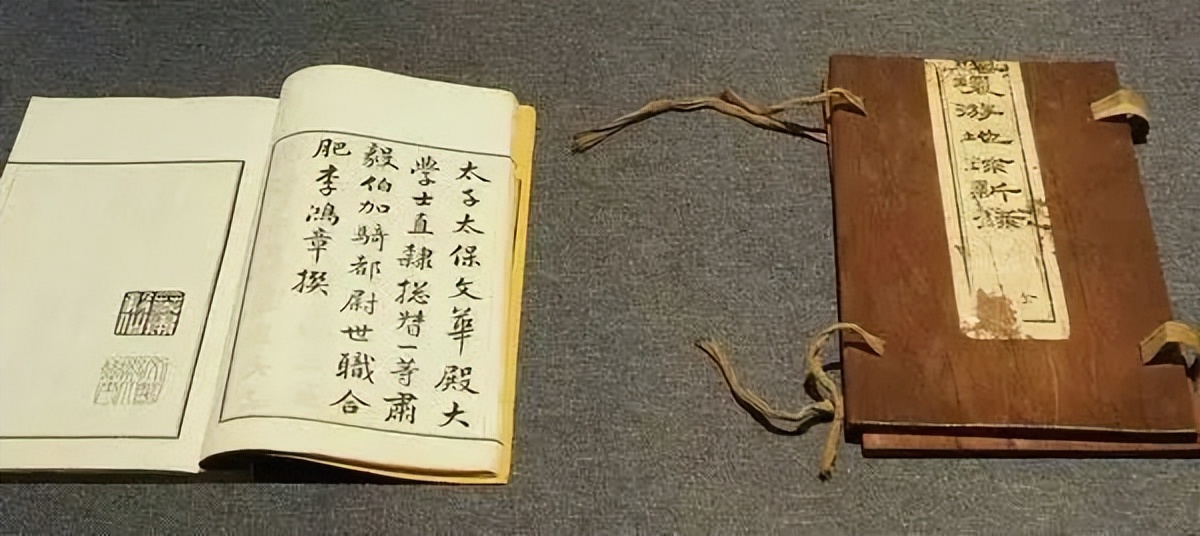 太子太保文華殿大
學士直隸摠督一等肅
毅伯加騎都尉世職合
肥李鴻章撰
環游地球新錄
全